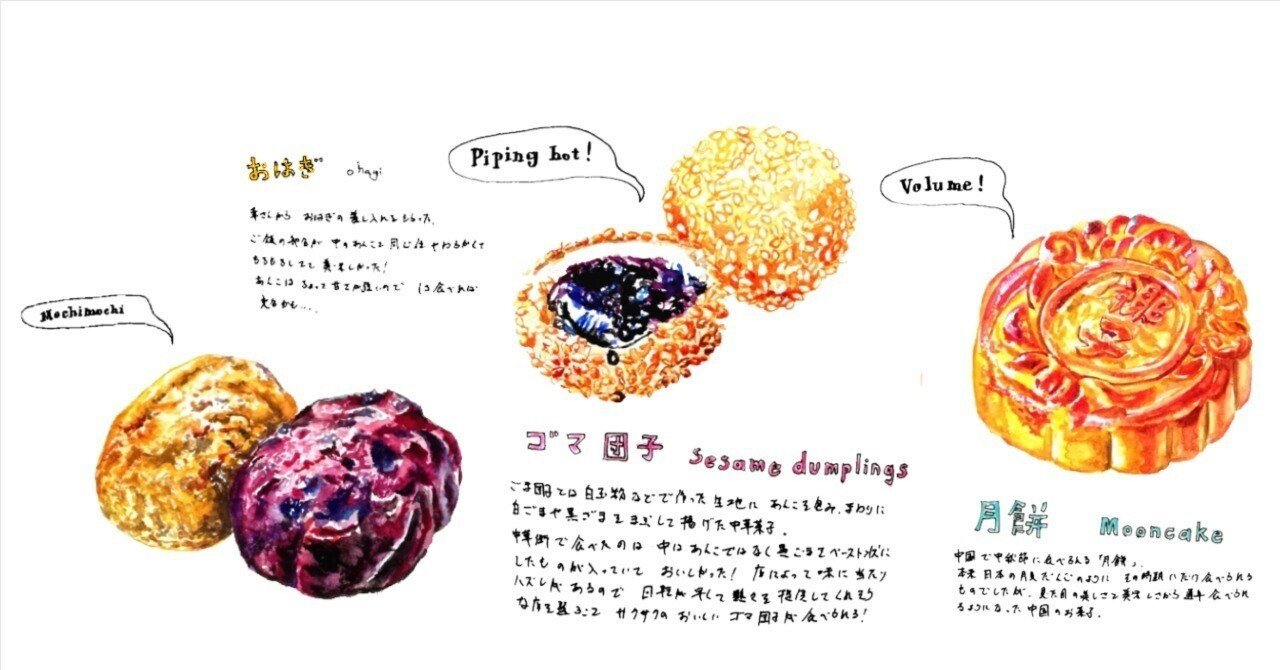 Mochimochi
おはぎ ohagi
おはぎの差し入れをもらった。
ご飯の部分が 中のあんこと同じ位やわらかくて
もちもちしてて 美味しかった!
あんこは ちょっと甘さが強いので 1コ食べれば
Piping hot!
ゴマ団子 sesame dumplings
ごま団子とは 白玉粉などで作った生地に あんこを包み、まわりに
白ごまや黒ごまをまぶして揚げた中華菓子。
中華街で食べたのは 中はあんこではなく黒ごまをペースト状に
したものが入っていて おいしかった! 店によって味に当たり
ハズレがあるので 回転が早くて熱々を提供してくれそう
な店を選ぶと サクサクの おいしい ゴマ団子が食べられる!
Volume!
月餅 Mooncake
中国で中秋節に食べられる「月餅」。
本来 日本の月見だんごのように その時期にだけ食べられる
ものでしたが、見た目の美しさと美味しさから通年食べられ
るようになった中国のお菓子。